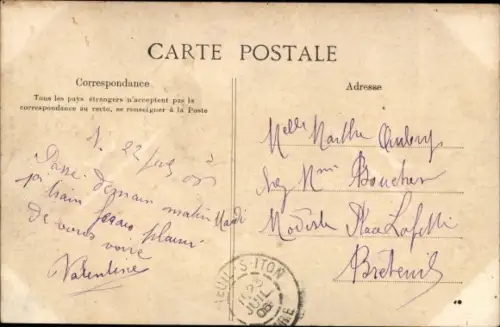 CARTE POSTALE
Correspondance
Tous les pays étrangers n'acceptent pas la
correspondance au recto, se renseigner à la Poste
Adresse
22
demain matin Mardi
train plaisir
de vous voir
Valentine
Melle Marthe Aubry
chez Mme Boucher
Modiste Place Lafitte
Breteuil
EUIL-S-ITON
JUIL